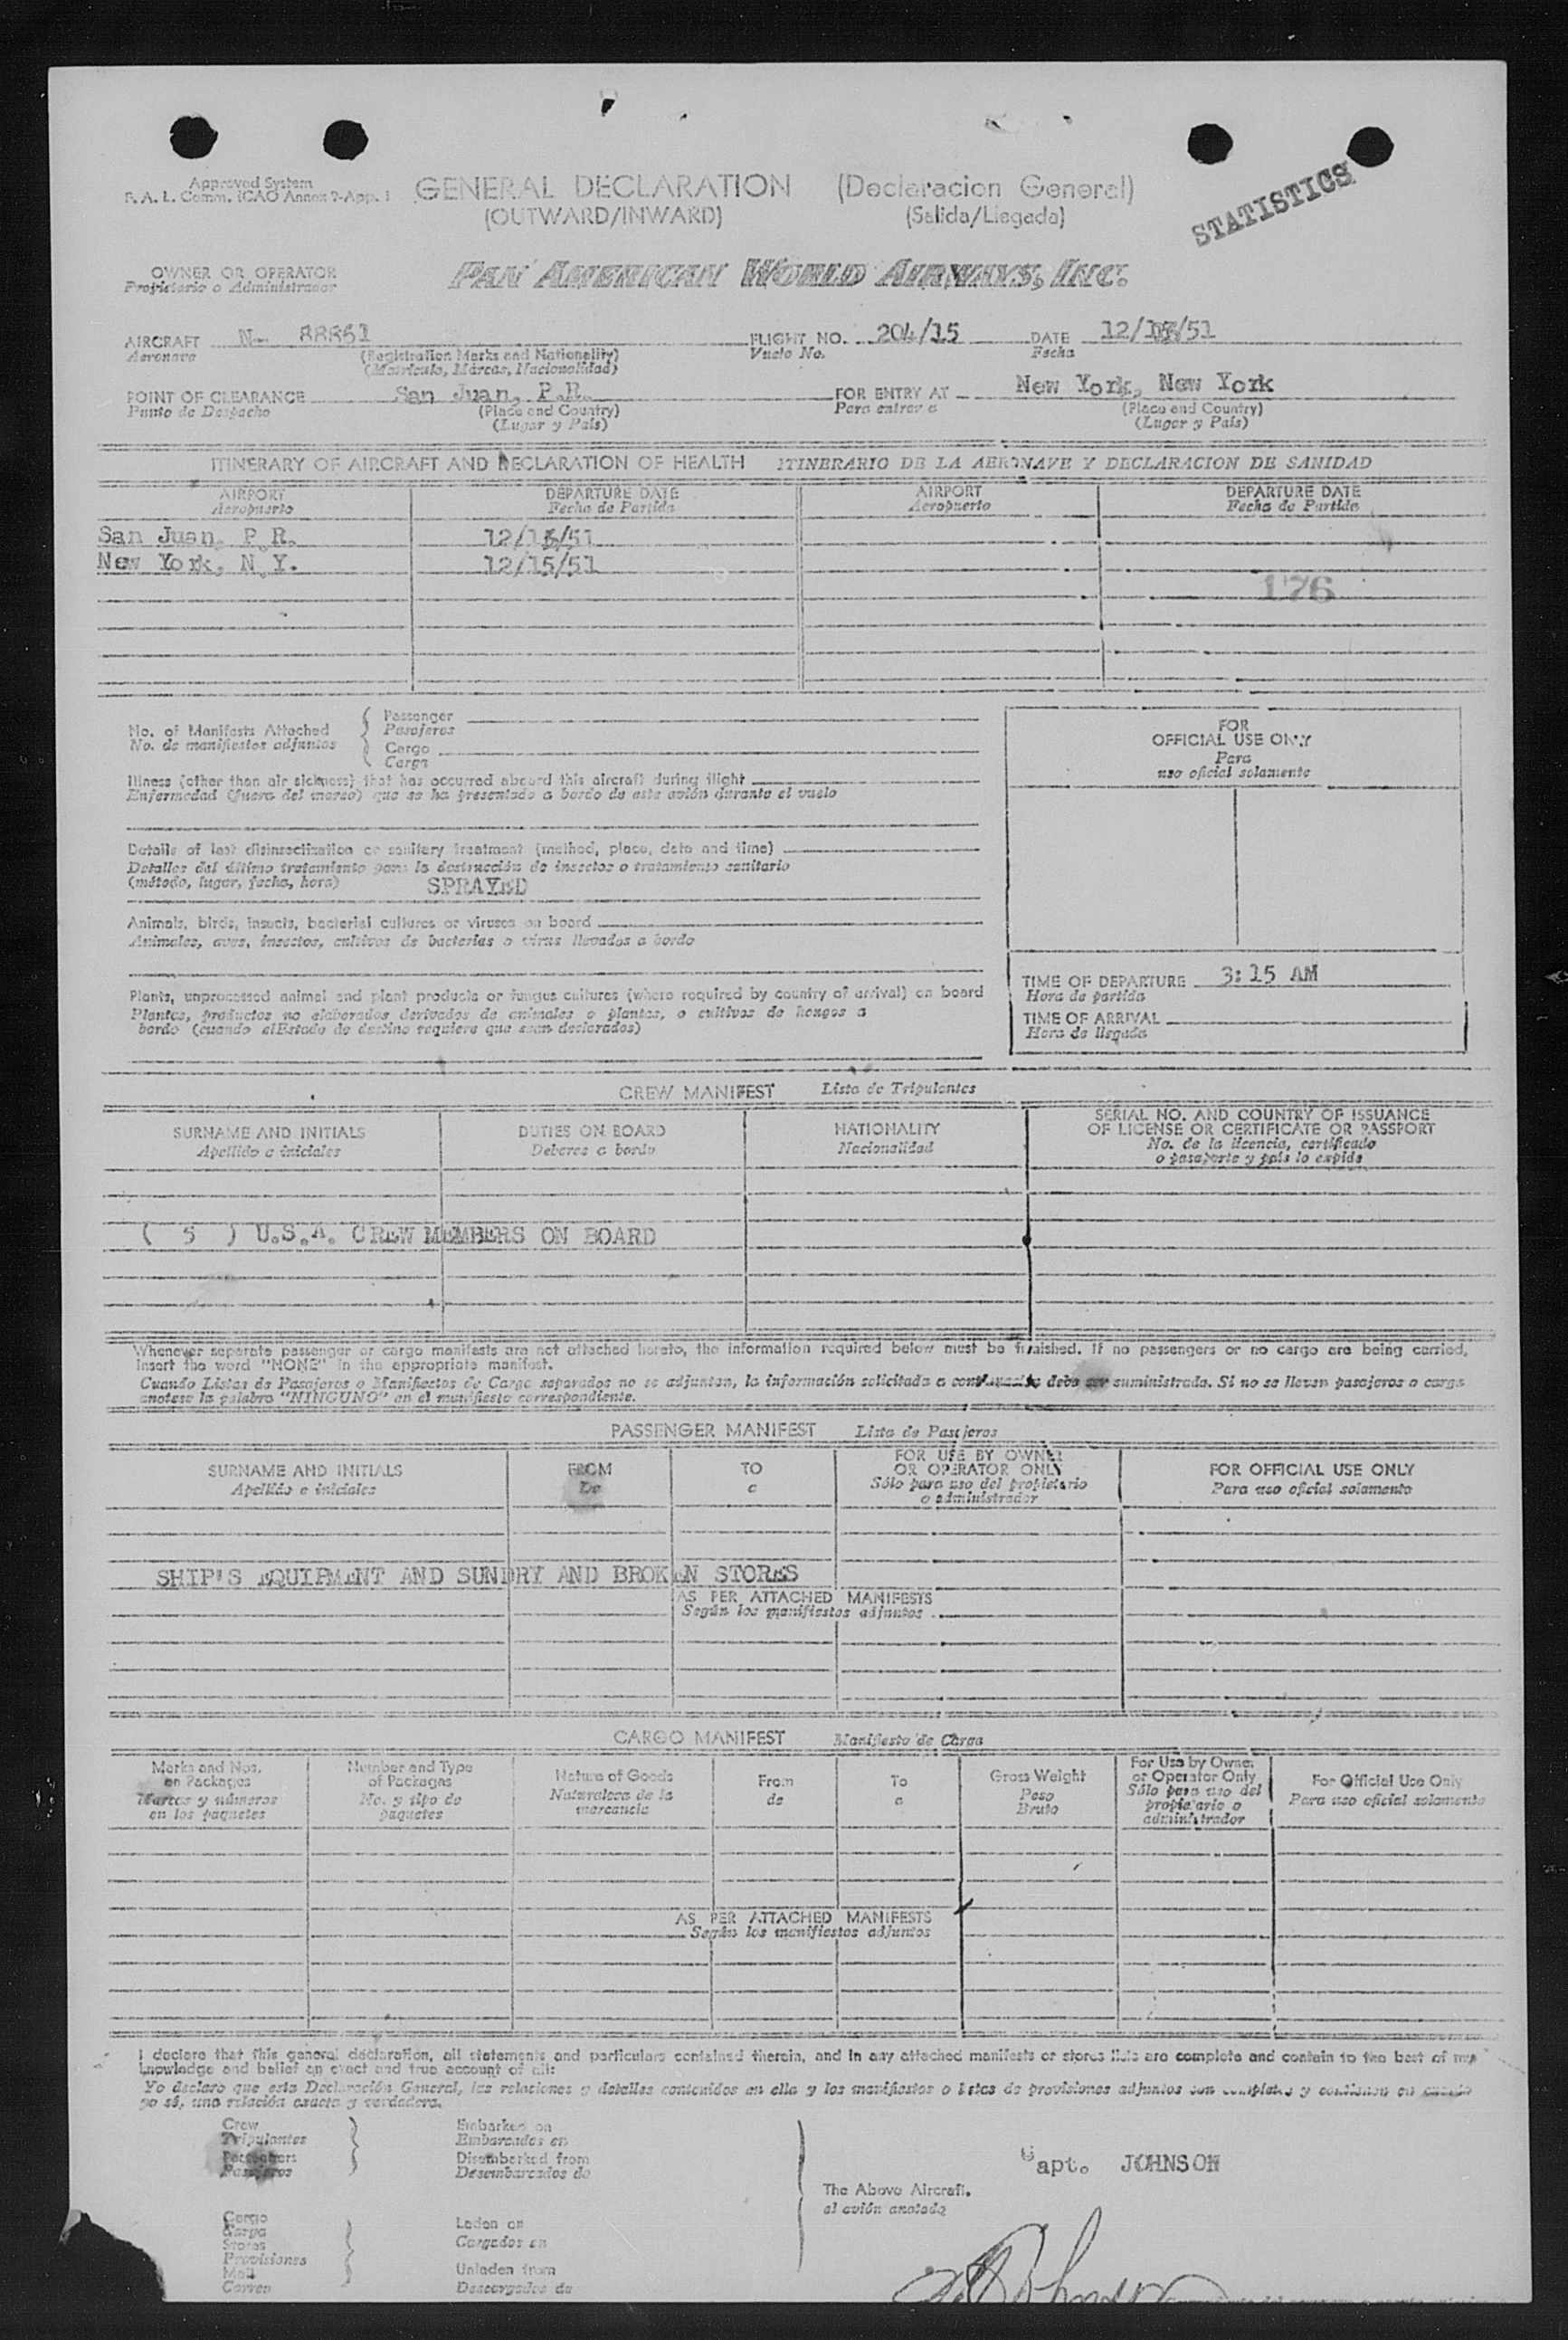 Approved System
F. A. L. Comm. ICAO Annex 9-App. 1
GENERAL DECLARATION (Declaracion General)
(OUTWARD/INWARD) (Salida/Llegada)
STATISTICS
OWNER OR OPERATOR
Propietario o Administrador
PAN AMERICAN WORLD AIRWAYS, INC.
AIRCRAFT N- 88861 FLIGHT NO. 204/15 DATE 12/15/51
Aeronave (Registration Marks and Nationality) Vuelo No. Fecha
(Matricula, Marcas, Nacionalidad)
POINT OF CLEARANCE San Juan, P.R. FOR ENTRY AT New York, New York
Punto de Despacho (Place and Country) Para entrar a (Place and Country)
(Lugar y País) (Lugar y País)
ITINERARY OF AIRCRAFT AND DECLARATION OF HEALTH ITINERARIO DE LA AERONAVE Y DECLARACION DE SANIDAD
AIRPORT DEPARTURE DATE AIRPORT DEPARTURE DATE
Aeropuerto Fecha de Partida Aeropuerto Fecha de Partida
San Juan, P.R. 12/15/51
New York, N.Y. 12/15/51
176
No. of Manifests Attached
No. de manifiestos adjuntos
Passenger
Pasajeros
Cargo
Carga
FOR
OFFICIAL USE ONLY
Para
uso oficial solamente
Illness (other than air sickness) that has occurred aboard this aircraft during flight
Enfermedad (fuera del mareo) que se ha presentado a bordo de este avión durante el vuelo
Details of last disinsectization or sanitary treatment (method, place, date and time)
Detalles del último tratamiento para la destrucción de insectos o tratamiento sanitario
(método, lugar, fecha, hora) SPRAYED
Animals, birds, insects, bacterial cultures or viruses on board
Animales, aves, insectos, cultivos de bacterias o virus llevados a bordo
Plants, unprocessed animal and plant products or fungus cultures (where required by country of arrival) on board
Plantas, productos no elaborados derivados de animales o plantas, o cultivos de hongos a
bordo (cuando el Estado de destino requiere que sean declarados)
TIME OF DEPARTURE 3:15 AM
Hora de partida
TIME OF ARRIVAL
Hora de llegada
CREW MANIFEST Lista de Tripulantes
SURNAME AND INITIALS DUTIES ON BOARD NATIONALITY SERIAL NO. AND COUNTRY OF ISSUANCE
OF LICENSE OR CERTIFICATE OR PASSPORT
Apellido e iniciales Deberes a bordo Nacionalidad No. de la licencia, certificado
o pasaporte y país lo expide
( 5 ) U.S.A. CREW MEMBERS ON BOARD
Whenever separate passenger or cargo manifests are not attached hereto, the information required below must be furnished. If no passengers or no cargo are being carried,
insert the word "NONE" in the appropriate manifest.
Cuando Listas de Pasajeros o Manifiestos de Carga separados no se adjuntan, la información solicitada a debe ser suministrada. Si no se llevan pasajeros o carga
anotese la palabra "NINGUNO" en el manifiesto correspondiente.
PASSENGER MANIFEST Lista de Pasajeros
SURNAME AND INITIALS FROM TO FOR USE BY OWNER
OR OPERATOR ONLY FOR OFFICIAL USE ONLY
Apellido e iniciales De a Sólo para uso del propietario
o administrador Para uso oficial solamente
SHIP'S EQUIPMENT AND SUNDRY AND BROKEN STORES
AS PER ATTACHED MANIFESTS
Según los manifiestos adjuntos
CARGO MANIFEST Manifiesto de Carga
Marks and Nos.
on Packages
Marcas y números
en los paquetes
Number and Type
of Packages
No. y tipo de
paquetes
Nature of Goods
Naturaleza de la
mercancia
From
de
To
a
Gross Weight
Peso
Bruto
For Use by Owner
or Operator Only
Sólo para uso del
propietario o
administrador
For Official Use Only
Para uso oficial solamente
AS PER ATTACHED MANIFESTS
Según los manifiestos adjuntos
I declare that this general declaration, all statements and particulars contained therein, and in any attached manifests or stores lists are complete and contain to the best of my
knowledge and belief an exact and true account of all:
Yo declaro que esta Declaración General, las relaciones y detalles contenidos en ella y los manifiestos o listas de provisiones adjuntos son completos y contienen en cuanto
yo sé, una relación exacta y verdadera.
Crew
Tripulantes
Passengers
Pasajeros
Embarked on
Embarcados en
Disembarked from
Desembarcados de
Capt. JOHNSON
The Above Aircraft.
al avión anotado
Cargo
Carga
Stores
Provisiones
Mail
Correo
Laden on
Cargados en
Unladen from
Descargados de
Johnson